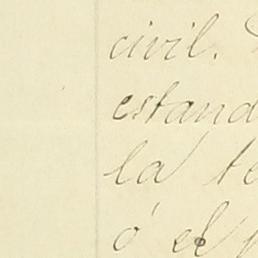 civil.
estand
la te
ó el